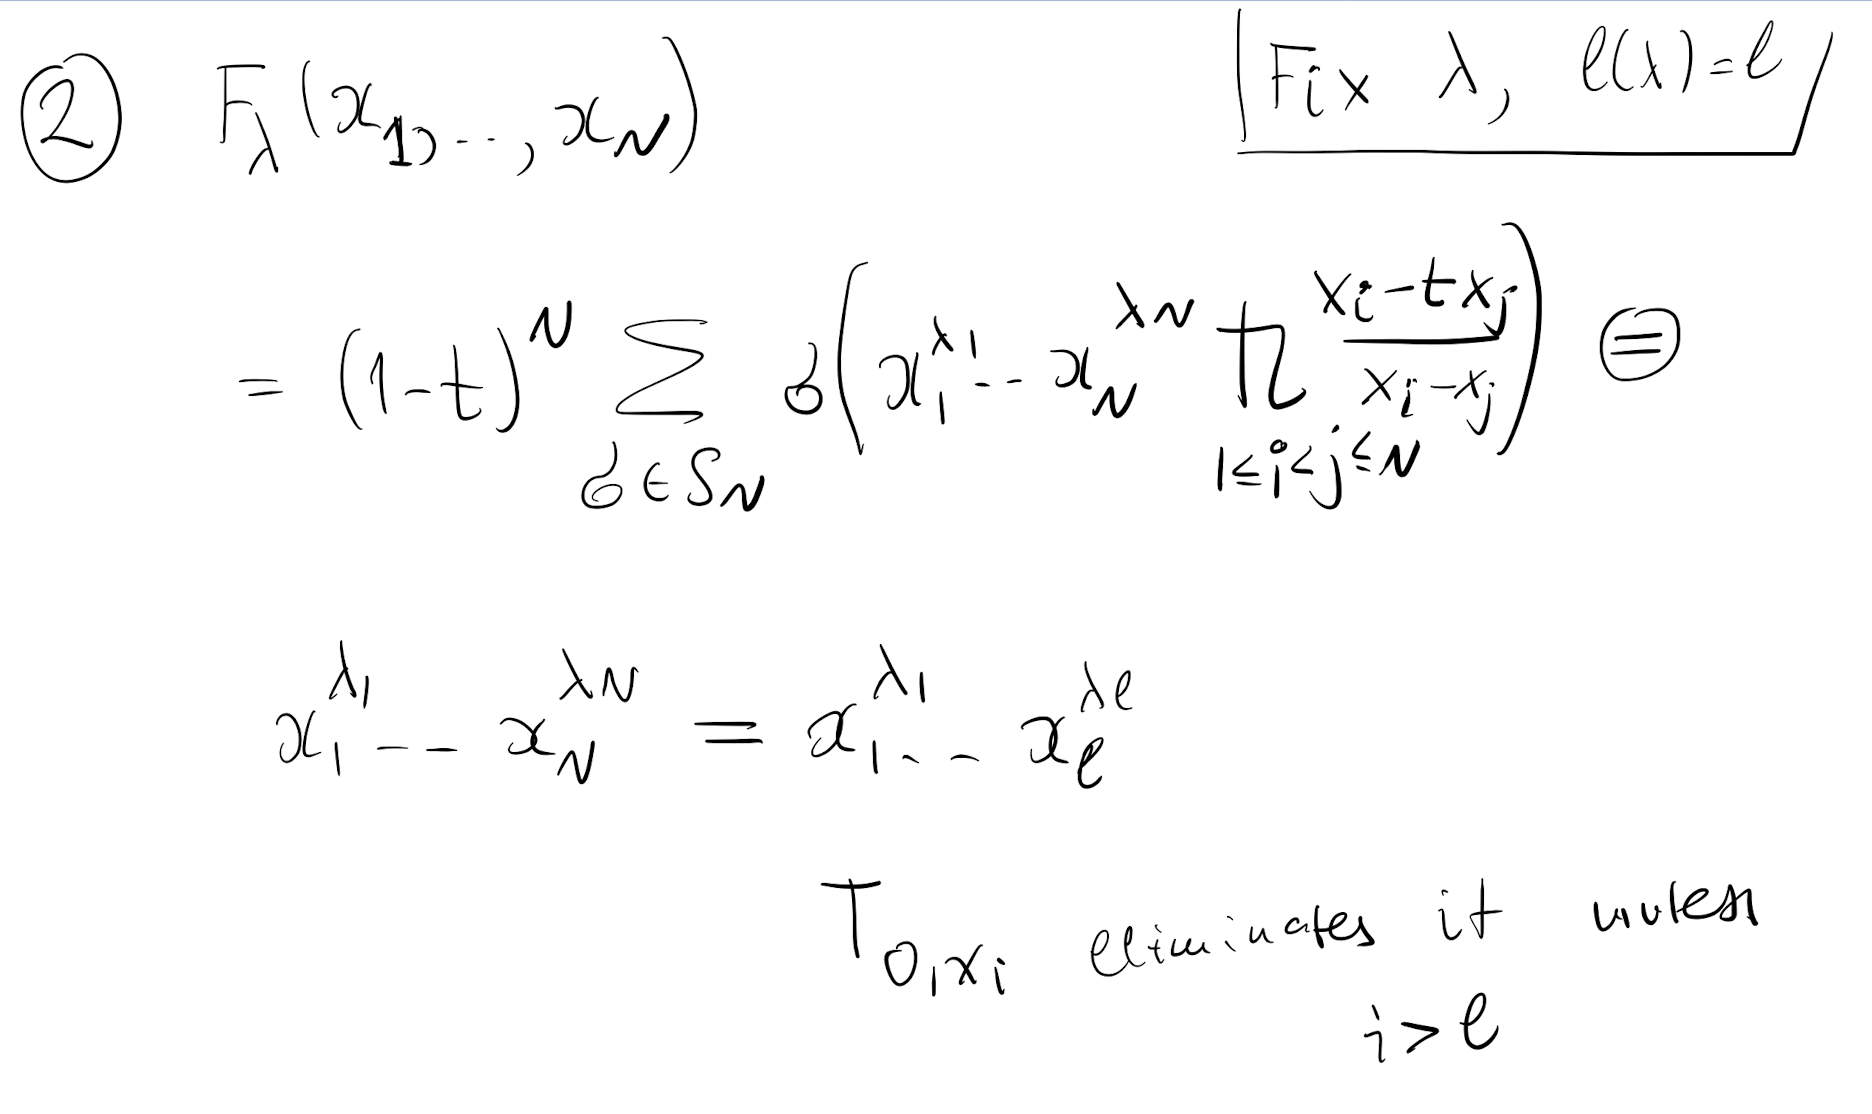 ② F_λ(x_1, ..., x_N) Fix λ, ℓ(λ)=ℓ
= (1-t)^N Σ_{σ∈S_N} σ( x_1^{λ_1} -- x_N^{λ_N} ∏_{1≤i<j≤N} (x_i - t x_j)/(x_i - x_j) ) ⊜
x_1^{λ_1} -- x_N^{λ_N} = x_1^{λ_1} -- x_ℓ^{λ_ℓ}
T_{0,x_i} eliminates it unless
i > ℓ